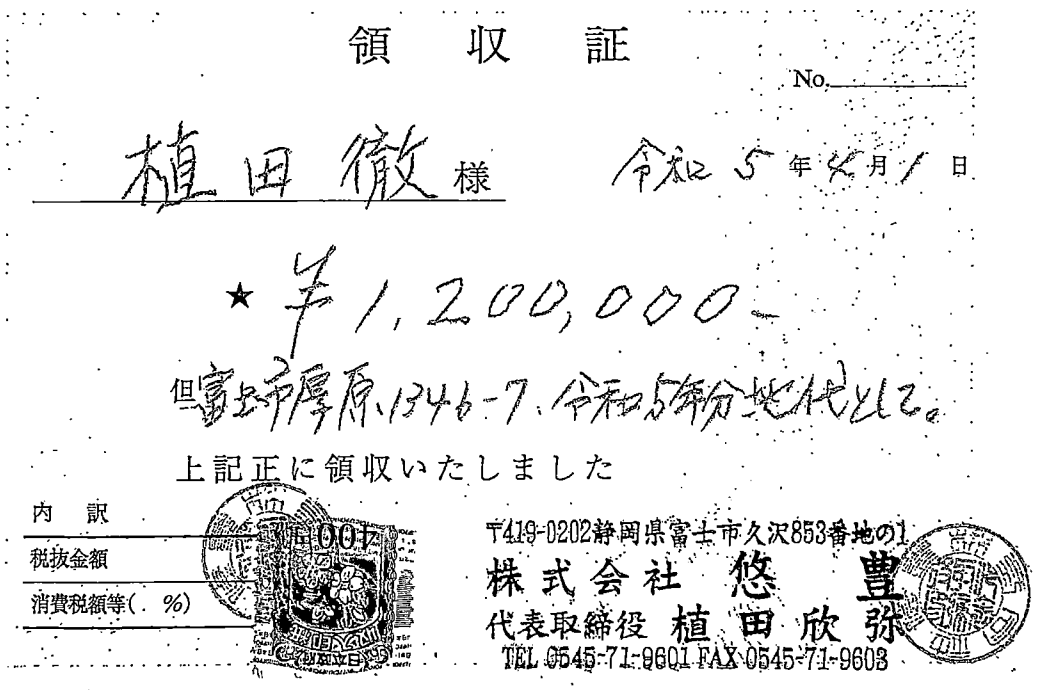 領収証
No.
植田徹様
令和5年4月1日
★ ¥1,200,000-
但富士市厚原1346-7、令和5年分地代として。
上記正に領収いたしました
内訳
税抜金額
消費税額等(. %)
〒419-0202静岡県富士市久沢853番地の1
株式会社 悠豊
代表取締役 植田欣弥
TEL 0545-71-9601 FAX 0545-71-9603